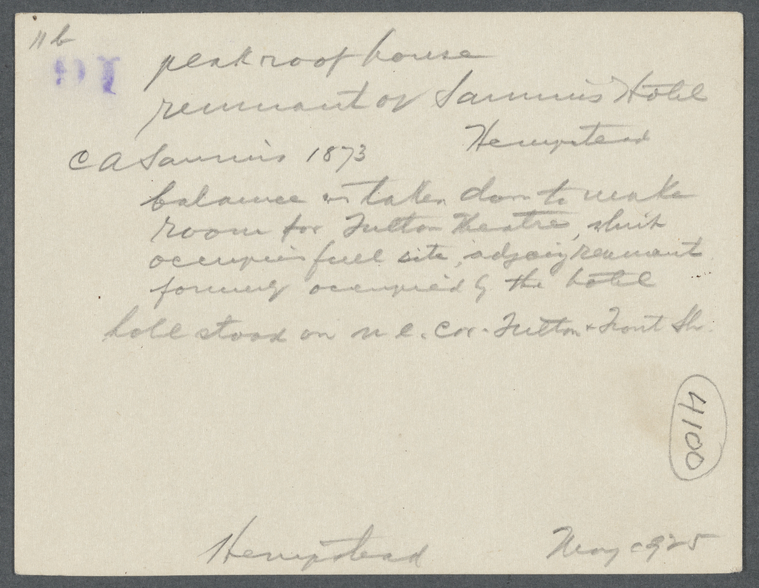 11b
peak roof house
remnant of Sammis Hotel
Hempstead
C A Sammis 1873
balance is taken down to make
room for Fulton Theatre, which
occupies full site, adjoing remnant
formerly occupied by the hotel
hotel stood on n e. cor. Fulton & Front Sts.
4100
Hempstead May 1925